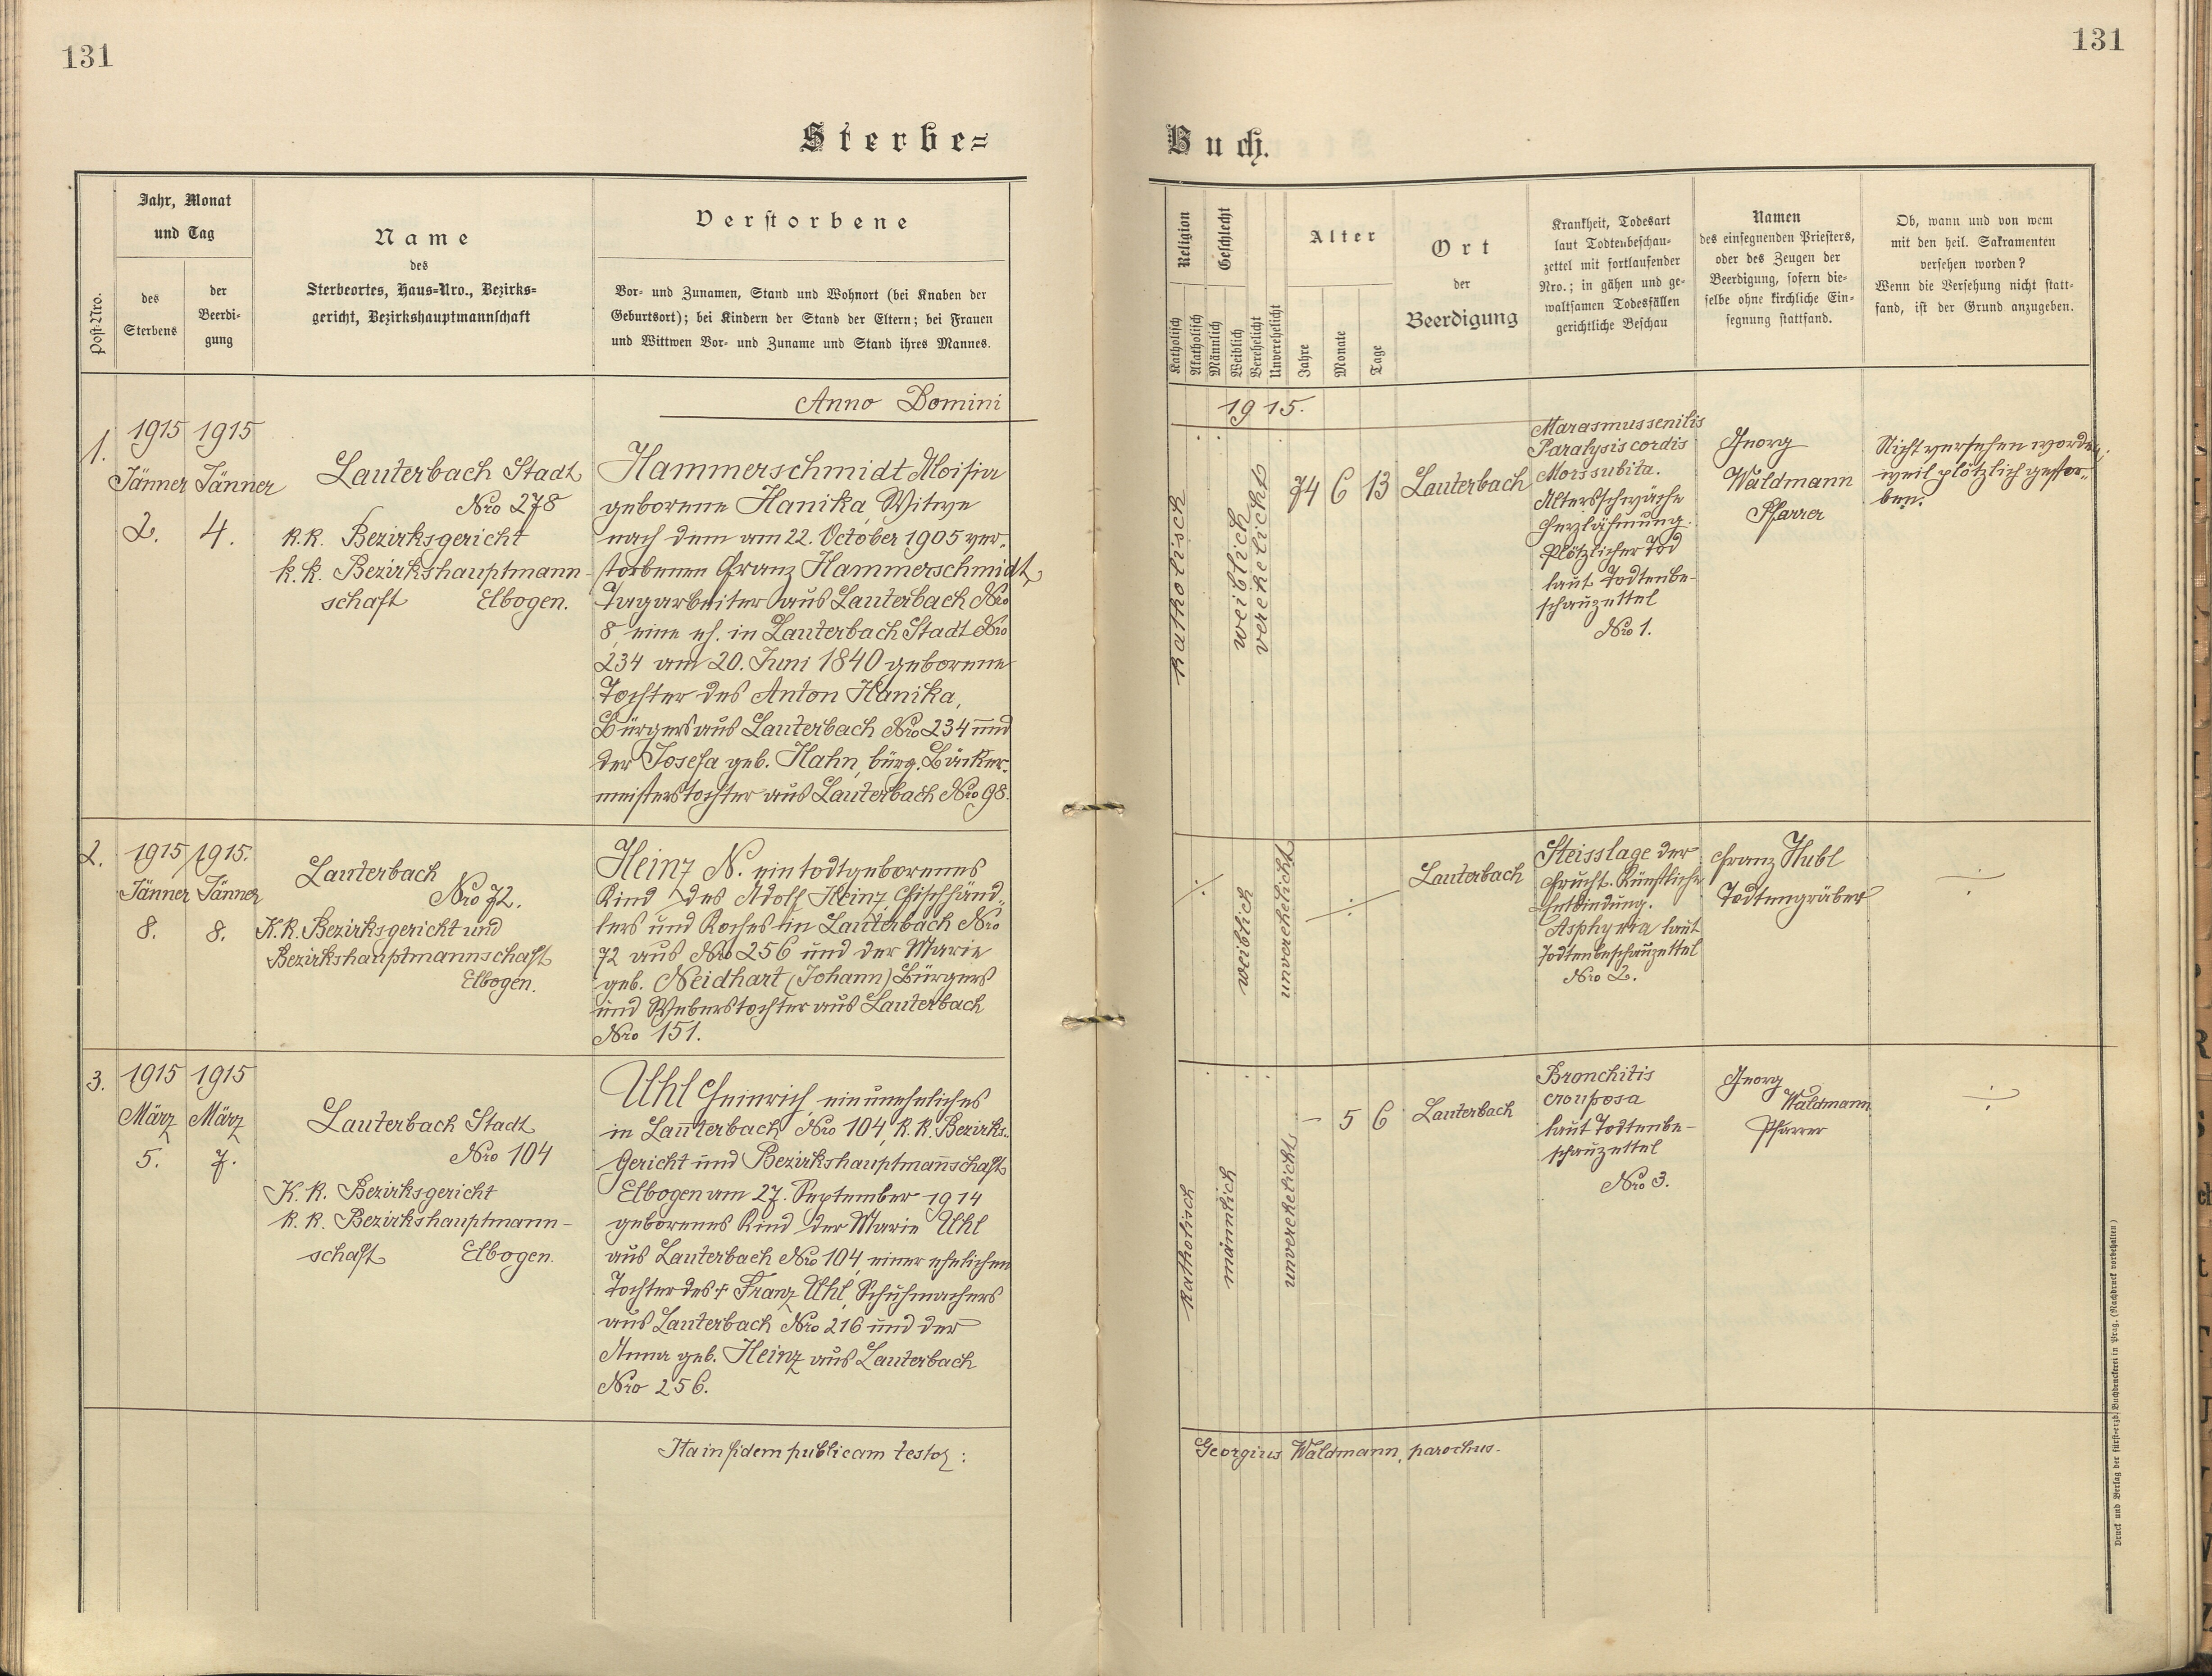 131
131
Sterbe=
Buch.
Post-Nro.
Jahr, Monat
und Tag
des
Sterbens
der
Beerdi-
gung
Name
des
Sterbeortes, Haus=Nro., Bezirks=
gericht, Bezirkshauptmannschaft
Verstorbene
Vor- und Zunamen, Stand und Wohnort (bei Knaben der
Geburtsort); bei Kindern der Stand der Eltern; bei Frauen
und Wittwen Vor- und Zuname und Stand ihres Mannes.
Religion
Geschlecht
Katholisch
Akatholisch
Männlich
Weiblich
Verehelicht
Unverehelicht
Alter
Jahre
Monate
Tage
Ort
der
Beerdigung
Krankheit, Todesart
laut Todtenbeschau-
zettel mit fortlaufender
Nro.; in gähen und ge-
waltsamen Todesfällen
gerichtliche Beschau
Namen
des einsegnenden Priesters,
oder des Zeugen der
Beerdigung, sofern die-
selbe ohne kirchliche Ein-
segnung stattfand.
Ob, wann und von wem
mit den heil. Sakramenten
versehen worden?
Wenn die Versehung nicht statt-
fand, ist der Grund anzugeben.
Anno Domini
1915.
1.
1915
Jänner
2.
1915
Jänner
4.
Lauterbach Stadt
Nro 278
k.k. Bezirksgericht
k.k. Bezirkshauptmann-
schaft Elbogen.
Hammerschmidt Aloisia
geborene Hanika, Witwe
nach dem am 22. October 1905 ver-
storbenen Franz Hammerschmidt,
Tagarbeiter aus Lauterbach Nro
8, eine eh. in Lauterbach Stadt Nro
234 am 20. Juni 1840 geborene
Tochter des Anton Hanika,
Bürgers aus Lauterbach Nro 234 und
der Josefa geb. Hahn, bürg. Bäcker-
meisterstochter aus Lauterbach Nro 98.
katholisch
weiblich
verehelicht
74
6
13
Lauterbach
Marasmus senilis
Paralysis cordis
Mors subita.
Altersschwäche
Herzlähmung.
Plötzlicher Tod
laut Todtenbe-
schauzettel
Nro 1.
Georg
Waldmann
Pfarrer
Nicht versehen worden,
weil plötzlich gestor-
ben.
2.
1915
Jänner
8.
1915.
Jänner
8.
Lauterbach
Nro 72.
K.K. Bezirksgericht und
Bezirkshauptmannschaft
Elbogen.
Heinz N. ein todtgeborenes
Kind des Adolf Heinz, Fischhänd-
lers und Koches in Lauterbach Nro
72 aus Nro 256 und der Marie
geb. Neidhart (Johann) Bürgers
und Weberstochter aus Lauterbach
Nro 151.
weiblich
unverehelicht
Lauterbach
Steisslage der
Frucht. Künstliche
Entbindung.
Asphyxia laut
Todtenbeschauzettel
Nro 2.
Franz Hubl
Todtengräber
3.
1915
März
5.
1915
März
7.
Lauterbach Stadt
Nro 104
K.K. Bezirksgericht
k.k. Bezirkshauptmann-
schaft Elbogen.
Uhl Heinrich, ein uneheliches
in Lauterbach Nro 104, k.k. Bezirks-
Gericht und Bezirkshauptmannschaft
Elbogen am 27. September 1914
geborenes Kind der Marie Uhl
aus Lauterbach Nro 104, einer ehelichen
Tochter des + Franz Uhl, Schuhmachers
aus Lauterbach Nro 216 und der
Anna geb. Heinz aus Lauterbach
Nro 256.
katholisch
männlich
unverehelicht
-
5
6
Lauterbach
Bronchitis
crouposa
laut Todtenbe-
schauzettel
Nro 3.
Georg
Waldmann
Pfarrer
Ita in fidem publicam testor:
Georgius Waldmann, parochus.
Druck und Verlag der fürst-erzb. Buchdruckerei in Prag. (Nachdruck vorbehalten)